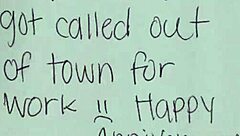 got called out
of town for
work !! Happy